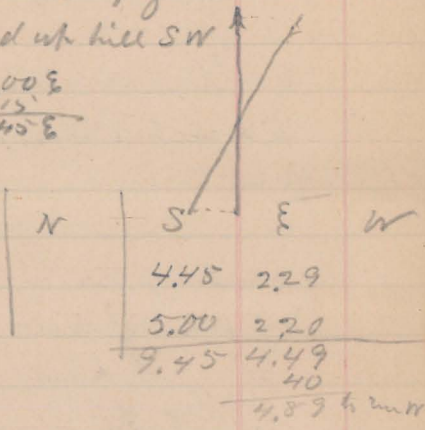 d up hill SW
00 E
15
45 E
N S E W
4.45 2.29
5.00 2.20
9.45 4.49
40
4.89 to